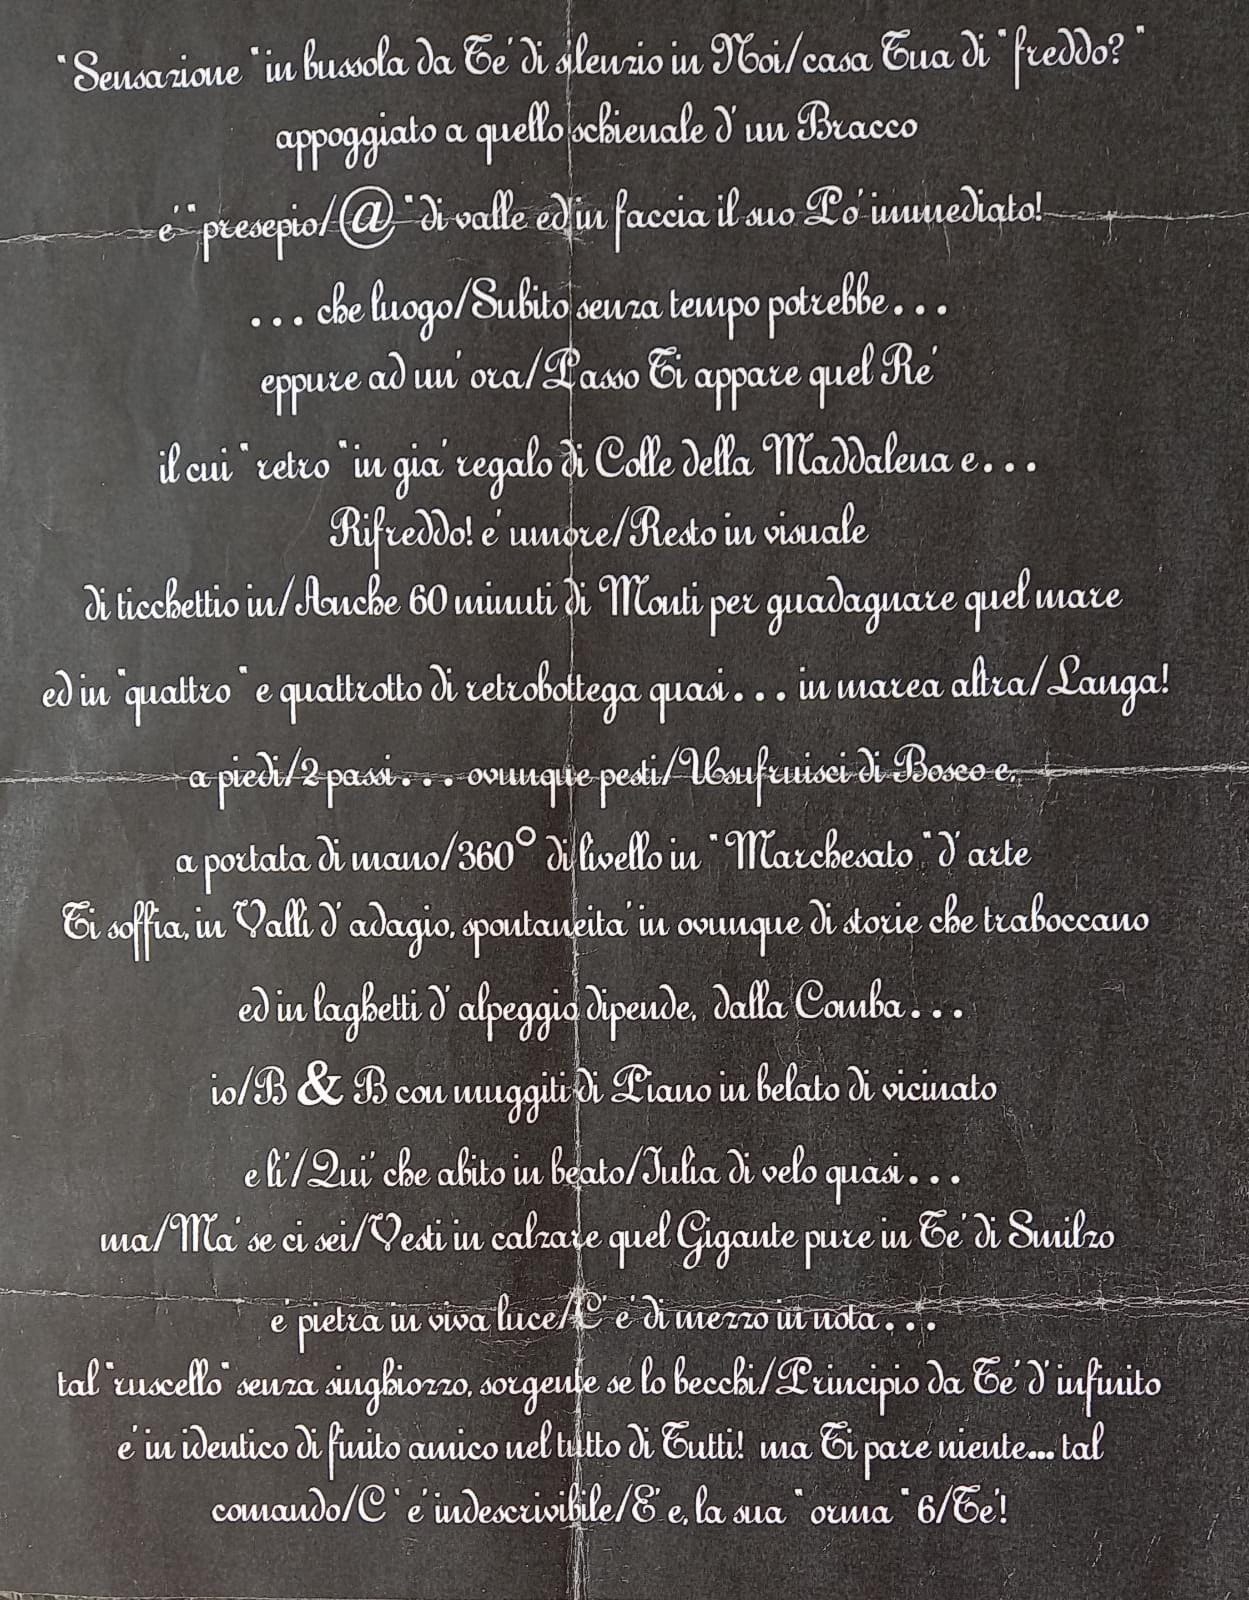 "Sensazione" in bussola da Te' di silenzio in Noi/casa Tua di "freddo?"
appoggiato a quello schienale d' un Bracco
e' "presepio/@" di valle ed in faccia il suo Po' immediato!
... che luogo/Subito senza tempo potrebbe...
eppure ad un' ora/Passo Ti appare quel Re'
il cui "retro" in gia' regalo di Colle della Maddalena e...
Rifreddo! e' umore/Resto in visuale
di ticchettio in/Anche 60 minuti di Monti per guadagnare quel mare
ed in "quattro" e quattrotto di retrobottega quasi... in marea altra/Langa!
a piedi/2 passi... ovunque pesti/Usufruisci di Bosco e,
a portata di mano/360° di livello in "Marchesato" d' arte
Ti soffia, in Valli d' adagio, spontaneita' in ovunque di storie che traboccano
ed in laghetti d' alpeggio dipende, dalla Comba...
io/B & B con muggiti di Piano in belato di vicinato
e li'/Qui' che abito in beato/Julia di velo quasi...
ma/Ma' se ci sei/Vesti in calzare quel Gigante pure in Te' di Smilzo
e' pietra in viva luce/C' e' di mezzo in nota...
tal "ruscello" senza singhiozzo, sorgente se lo becchi/Principio da Te' d' infinito
e' in identico di finito amico nel tutto di Tutti! ma Ti pare niente... tal
comando/C ' e' indescrivibile/E' e, la sua "orma" 6/Te'!